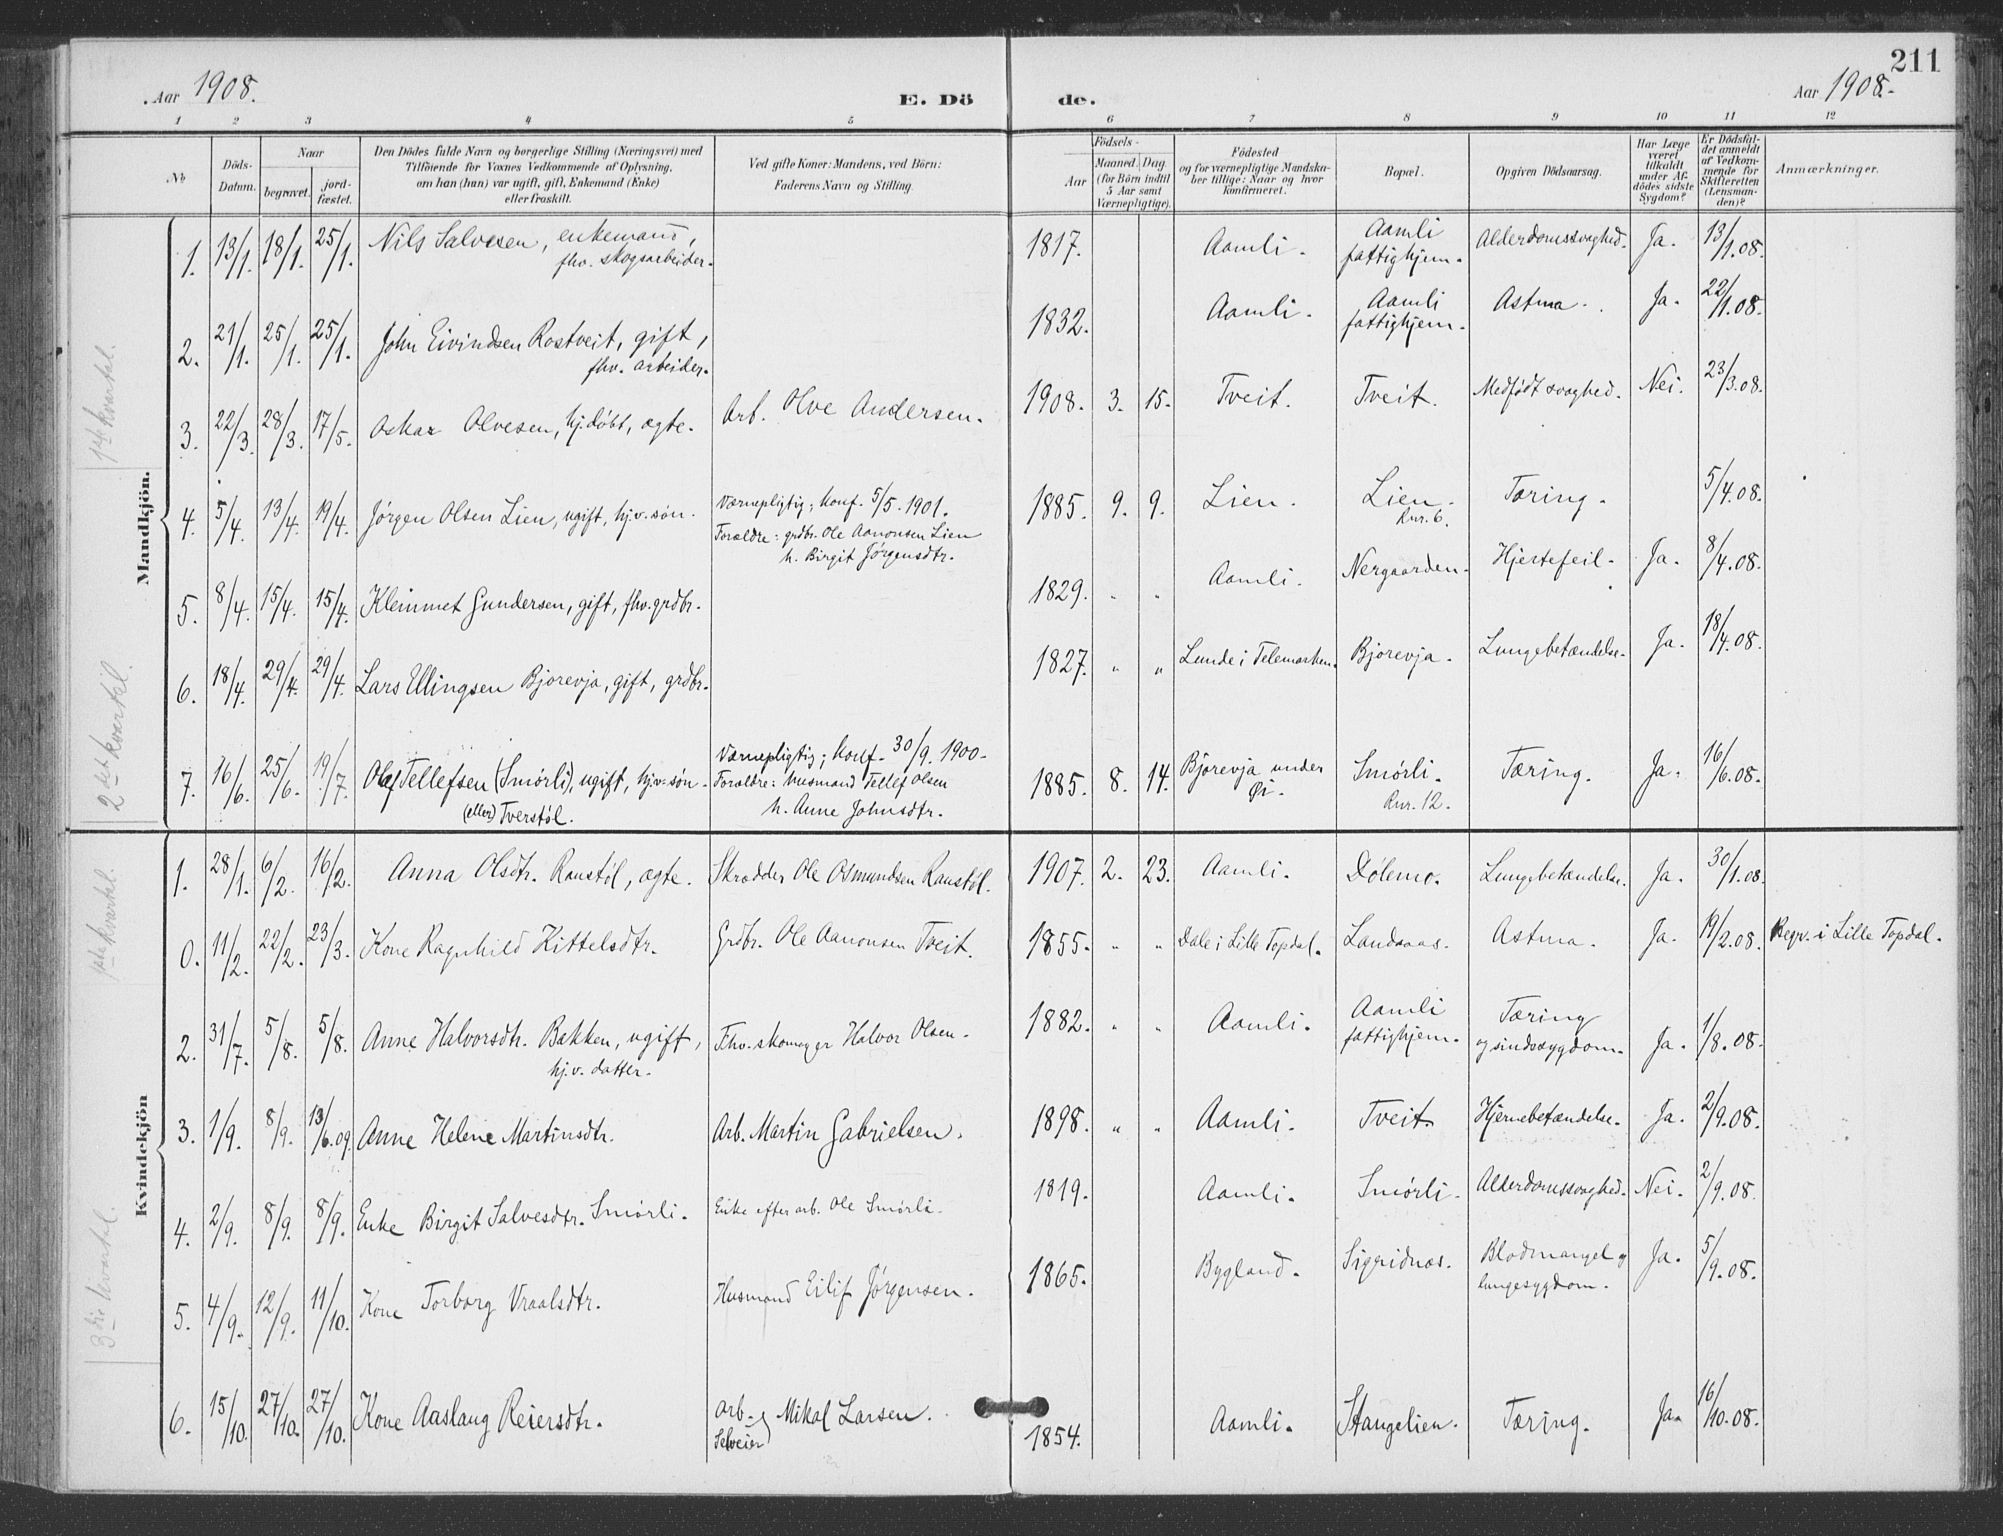 211
Aar 1908.
E. Dö
de.
Aar 1908.-
1 2 3 4 5 6 7 8 9 10 11 12
No
Döds-Datum.
Naar
begravet.
jord-fæstet.
Den Dödes fulde Navn og borgerlige Stilling (Næringsvei) med
Tilföiende for Voxnes Vedkommende af Oplysning,
om han (hun) var ugift, gift, Enkemand (Enke)
eller fraskilt.
Ved gifte Koner: Mandens, ved Börn:
Faderens Navn og Stilling.
Födsels-
Aar
Maaned. Dag.
(for Börn indtil
5 Aar samt
Værnepligtige).
Födested
og for værnepligtige Mandska-
ber tillige: Naar og hvor
konfirmeret.
Bopæl.
Opgiven Dödsaarsag.
Har Læge
været
tilkaldt
under Af-
dödes sidste
Sygdom?
Er Dödsfal-
det anmeldt
af Vedkom-
mende for
Skifteretten
(Lensman-
den)?
Anmærkninger.
Mandkjön.
1ste kvartal.
2det kvartal.
1. 13/1. 18/1. 25/1. Nils Salvesen, enkemand, 1817. Aamli. Aamli Alderdomssvaghed. Ja. 13/1.08.
fhv. skogsarbeider. fattighjem.
2. 21/1. 25/1. 25/1. John Eivindsen Rostveit, gift, 1832. Aamli. Aamli Astma. Ja. 22/1.08.
fhv. arbeider. fattighjem.
3. 22/3. 28/3. 17/5. Oskar Olvesen, hj.døbt, ægte. Arb. Olve Andersen. 1908. 3. 15. Tveit. Tveit. Medfødt svaghed. Nei. 23/3.08.
4. 5/4. 13/4. 19/4. Jørgen Olsen Lien, ugift, hj.v. søn. Værnepligtig; Konf. 5/5. 1901. 1885. 9. 9. Lien. Lien. Tæring. 5/4.08.
Forældre: grdbr. Ole Aanonsen Lien Rnr. 6.
h. Birgit Jørgensdtr.
5. 8/4. 15/4. 15/4. Kleimmet Gundersen, gift, fhv. grdbr. 1829. " " Aamli. Nergaarden. Hjertefeil. Ja. 8/4.08.
6. 18/4. 29/4. 29/4. Lars Ellingsen Bjorevja, gift, grdbr. 1827. " " Lunde i Telemarken. Bjorevja. Lungebetændelse. Ja. 18/4.08.
7. 16/6. 25/6. 19/7. Olaf Tellefsen (Smørli), ugift, hj.v. søn. Værnepligtig; Konf. 30/9. 1900. 1885. 8. 14. Bjorevja under Smørli. Tæring. Ja. 16/6.08.
(eller) Tverstøl. Forældre: husmand Tellef Olsen Øi. Rnr. 12.
h. Anne Johnsdtr.
Kvindekjön
1ste kvartal.
3die kvartal.
1. 28/1. 6/2. 16/2. Anna Olsdtr. Raustøl, ægte. Skrædder Ole Osmundsen Raustøl. 1907. 2. 23. Aamli. Dølemo. Lungebetændelse. Ja. 30/1.08.
0. 11/2. 22/2. 23/3. Kone Ragnhild Kittelsdtr. Grdbr. Ole Aanonsen Tveit. 1855. " " Dale i Lille Topdal. Landaas. Astma. Ja. 19/2.08. Begr. i Lille Topdal.
2. 31/7. 5/8. 5/8. Anne Halvorsdtr. Bakken, ugift, Fhv. skomager Halvor Olsen. 1882. " " Aamli. Aamli Tæring Ja. 1/8.08.
hj.v. datter. fattighjem. og sindssygdom.
3. 1/9. 8/9. 13/6.09. Anne Helene Martinsdtr. Arb. Martin Gabrielsen. 1898. " " Aamli. Tveit Hjernebetændelse. Ja. 2/9.08.
4. 2/9. 8/9. 8/9. Enke Birgit Salvesdtr. Smørli. Enke efter arb. Ole Smørli. 1819. Aamli. Smørli. Alderdomssvaghed. Nei. 2/9.08.
5. 4/9. 12/9. 11/10. Kone Torborg Vraalsdtr. Husmand Eilif Jørgensen. 1865. Bygland. Sigridnæs. Blodmangel og Ja. 5/9.08.
lungesygdom.
6. 15/10. 27/10. 27/10. Kone Aaslaug Reiersdtr. arb. Mikal Larsen. 1854. Aamli. Stangelien. Tæring. Ja. 16/10.08.
Selveier